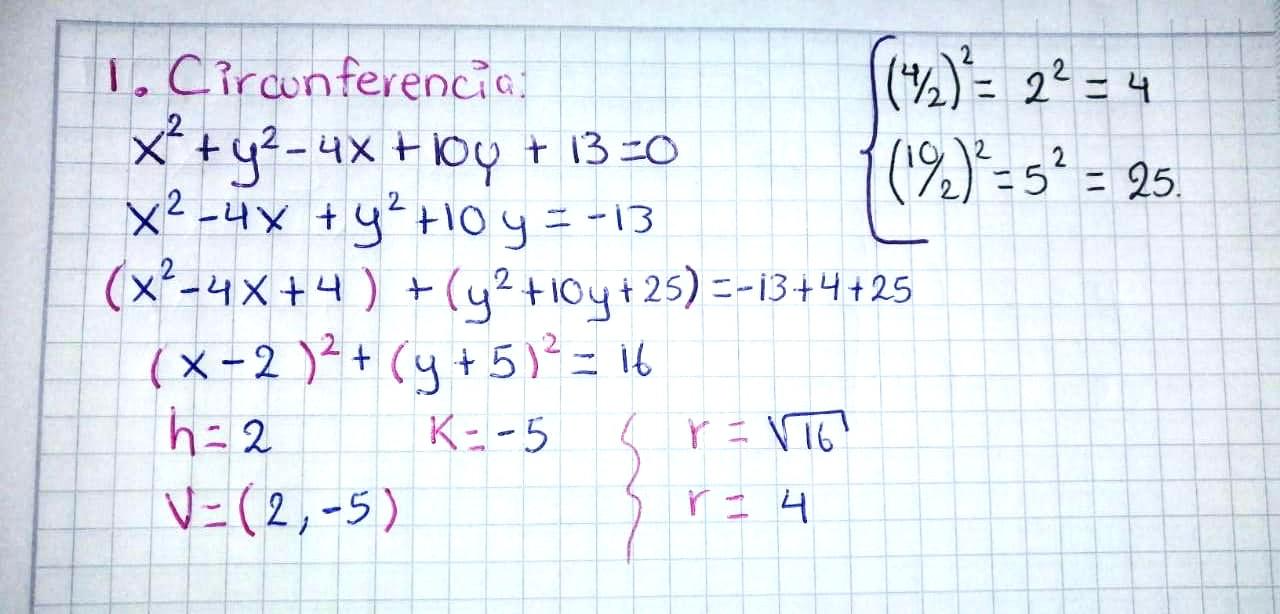 1. Circunferencia:
x² + y² - 4x + 10y + 13 = 0
x² - 4x + y² + 10y = -13
(x² - 4x + 4) + (y² + 10y + 25) = -13 + 4 + 25
(x - 2)² + (y + 5)² = 16
h = 2 K = -5 r = √16
V = (2, -5) r = 4
(4/2)² = 2² = 4
(10/2)² = 5² = 25.